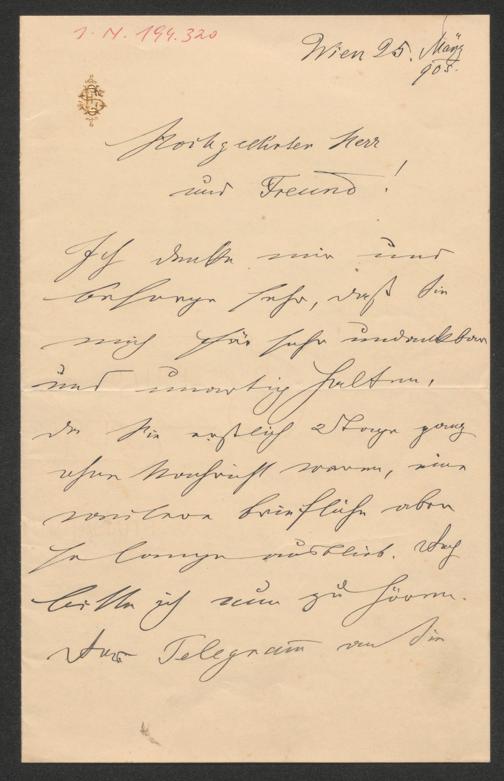 I. N. 194.320
Wien 25. März
905.
Hochgeehrter Herr
und Freund!
Ich denke mir und
besorge sehr, daß Sie
mich für sehr undankbar
und unartig halten,
da Sie erstlich 2 Tage ganz
ohne Nachricht waren, eine
weitere briefliche aber
so lange ausblieb. Doch
bitte ich nun zu hören.
Das Telegram an Sie